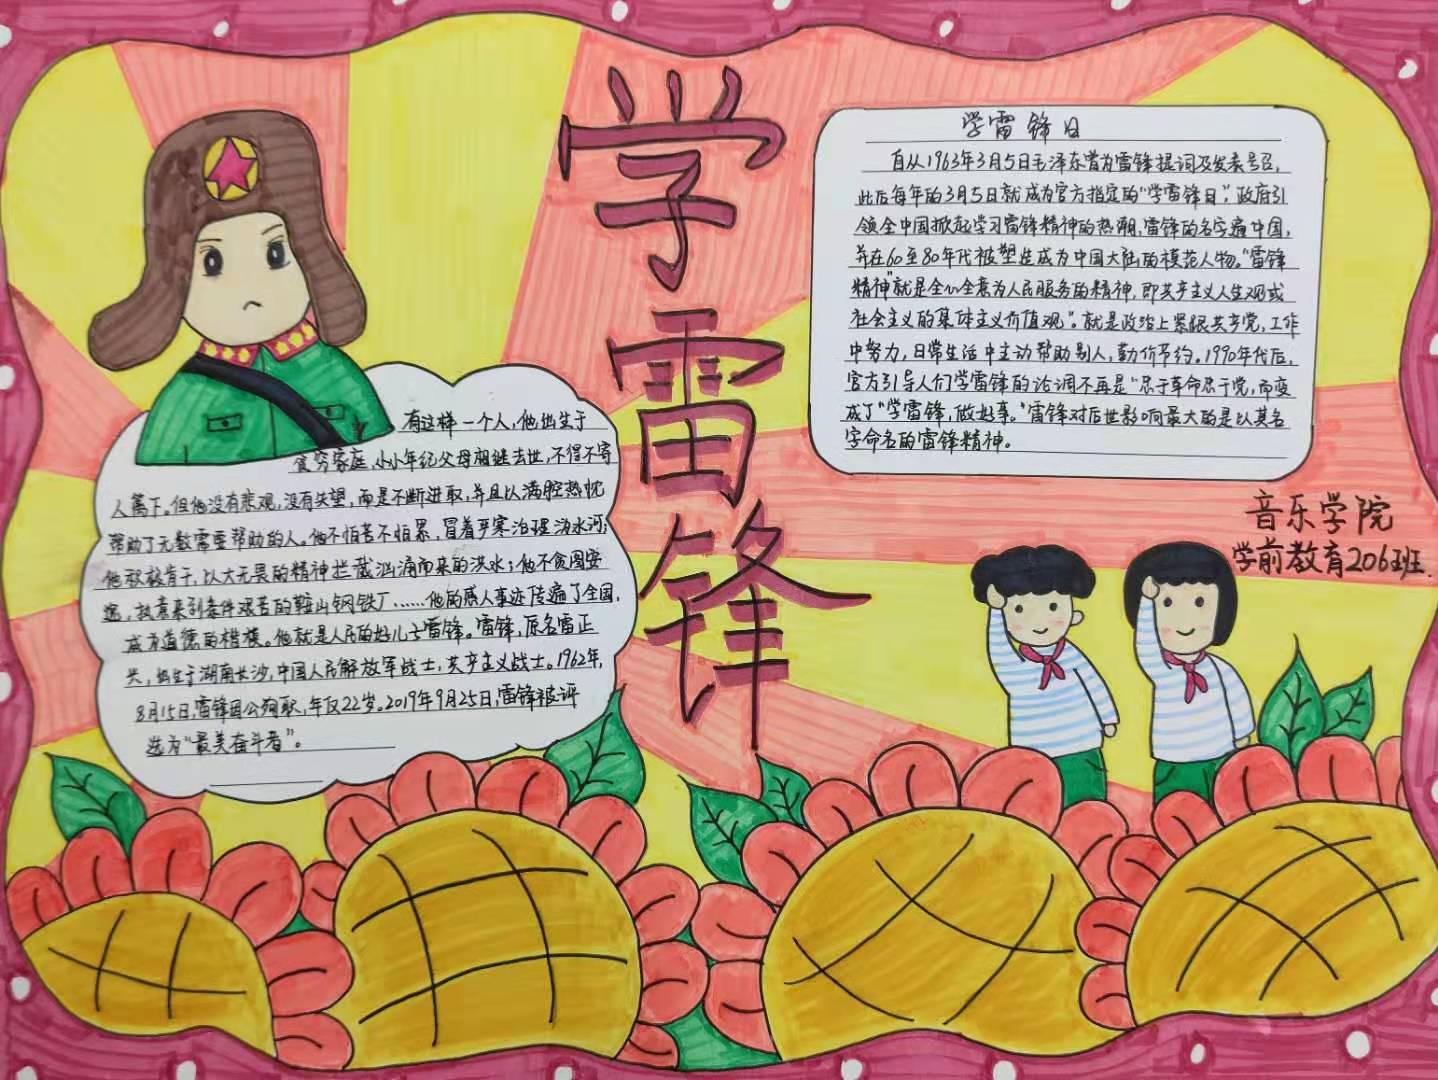 学雷锋
学雷锋日
自从1963年3月5日毛泽东曾为雷锋提词及发表号召,
此后每年的3月5日就成为官方指定的"学雷锋日",政府引
领全中国掀起学习雷锋精神的热潮,雷锋的名字遍中国,
并在60至80年代被塑造成为中国大陆的模范人物。"雷锋
精神"就是全心全意为人民服务的精神,即共产主义人生观或
社会主义的集体主义价值观"。就是政治上紧跟共产党,工作
中努力,日常生活中主动帮助别人,勤俭节约。1990年代后,
官方引导人们学雷锋的论调不再是"忠于革命忠于党,而变
成了"学雷锋,做好事。"雷锋对后世影响最大的是以其名
字命名的雷锋精神。
有这样一个人,他出生于
贫穷家庭,小小年纪父母相继去世,不得不寄
人篱下。但他没有悲观,没有失望,而是不断进取,并且以满腔热忱
帮助了无数需要帮助的人。他不怕苦不怕累,冒着严寒治理沩水河;
他积极肯干,以大无畏的精神拦截汹涌而来的洪水;他不贪图安
逸,执意来到条件艰苦的鞍山钢铁厂……他的感人事迹传遍了全国,
成为道德的楷模。他就是人民的好儿子雷锋。雷锋,原名雷正
兴,出生于湖南长沙,中国人民解放军战士,共产主义战士。1962年,
8月15日,雷锋因公殉职,年仅22岁。2019年9月25日,雷锋被评
选为"最美奋斗者"。
音乐学院
学前教育206班.